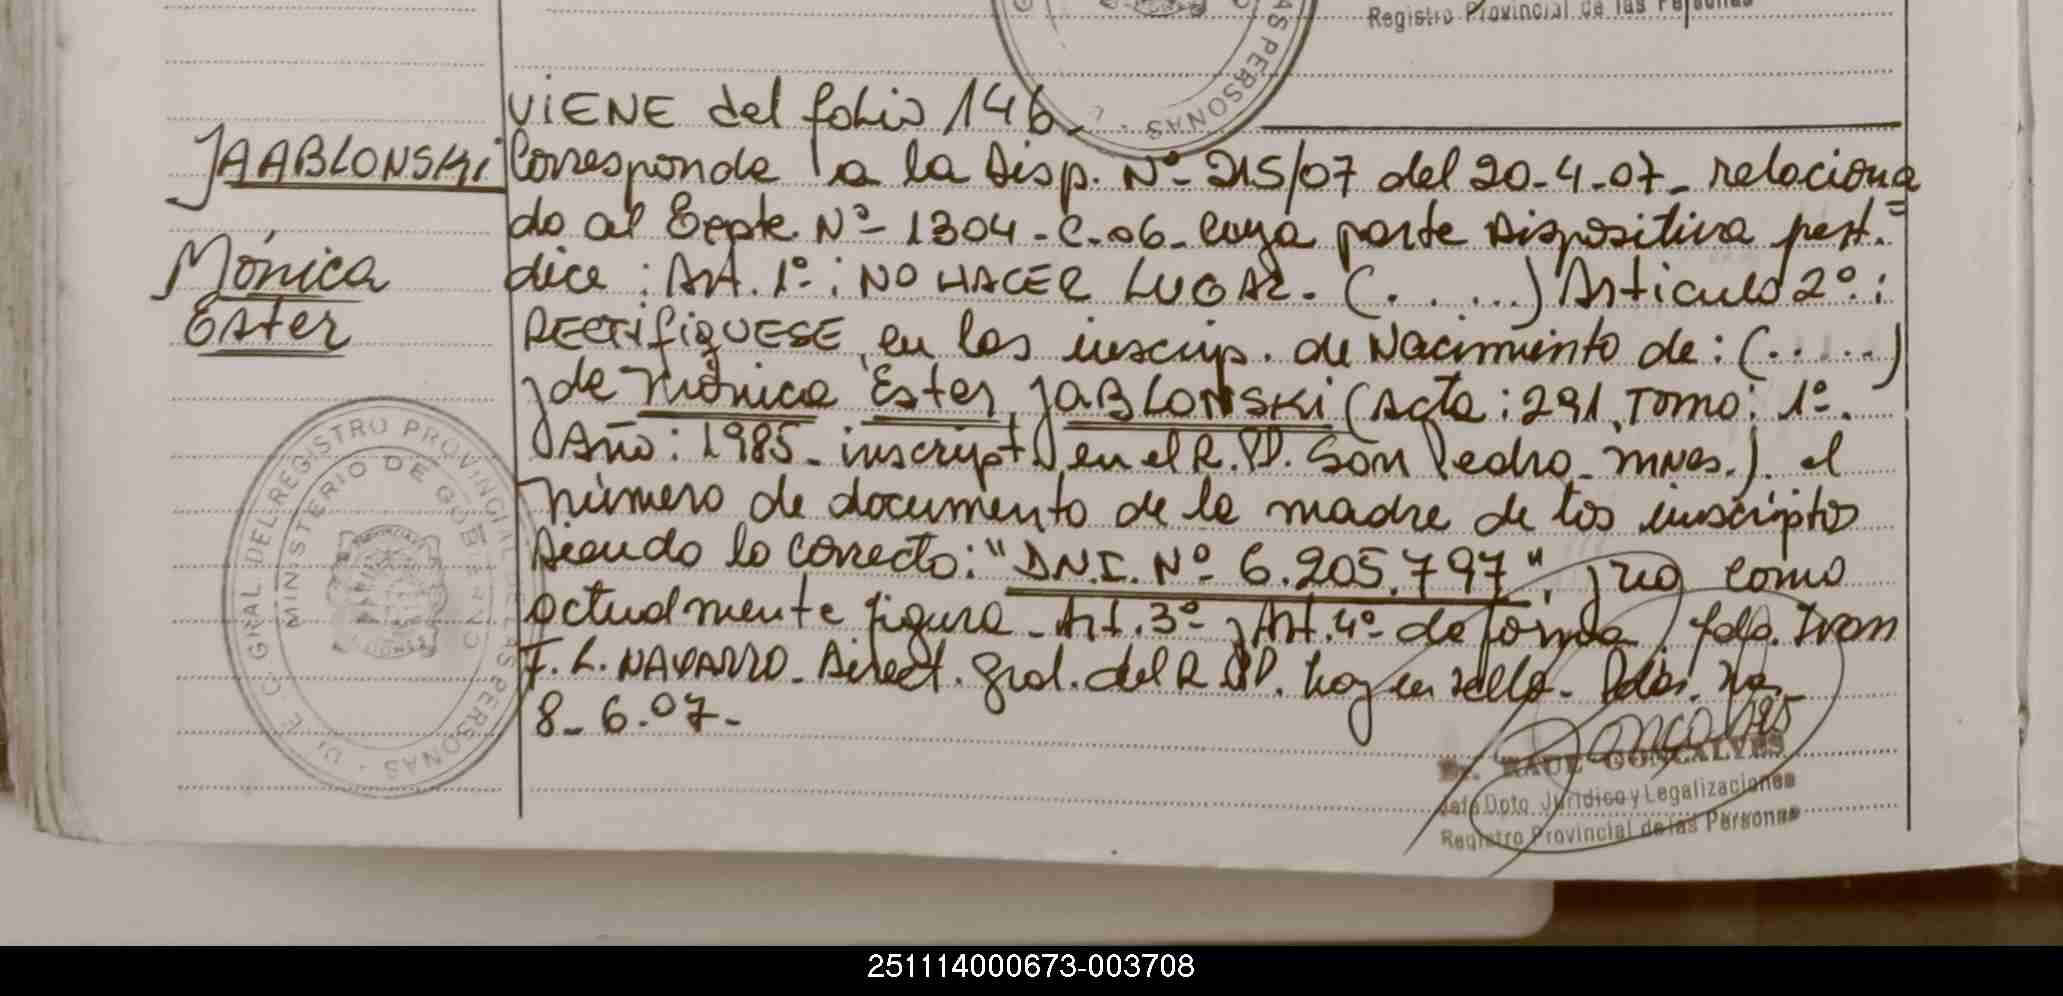 Registro Provincial de las Personas
VIENE del folio 146-
JAABLONSKi
Corresponde a la Disp. Nº 215/07 del 20-4-07- relaciona
do al Expte. Nº 1304-C-06- cuya parte dispositiva pert.=
Mónica
dice: Art. 1º: NO HACER LUGAR. (.....) Articulo 2º:
Ester
RECTifiQUESE, en las inscrip. de Nacimiento de: (.....)
y de Mónica Ester JABLONSKi (Acta: 291, Tomo: 1º.
Año: 1985- inscripta en el R.PP. San Pedro- mnes.). el
número de documento de la madre de los inscriptos
siendo lo correcto: "D.N.I. Nº 6.205.797", y no como
actualmente figura- Art. 3º y Art. 4º- de forma, fdo. Ivan
F. L. NAVARRO- Direct. Gral. del R.PP. hay un sello- Pdas. Mnes-
8-6.07-
DIREC. GRAL. DEL REGISTRO PROVINCIAL DE LAS PERSONAS
MINISTERIO DE GOBIERNO
Dr. RAUL GONCALVES
Jefe Dpto. Juridico y Legalizaciones
Registro Provincial de las Personas
251114000673-003708